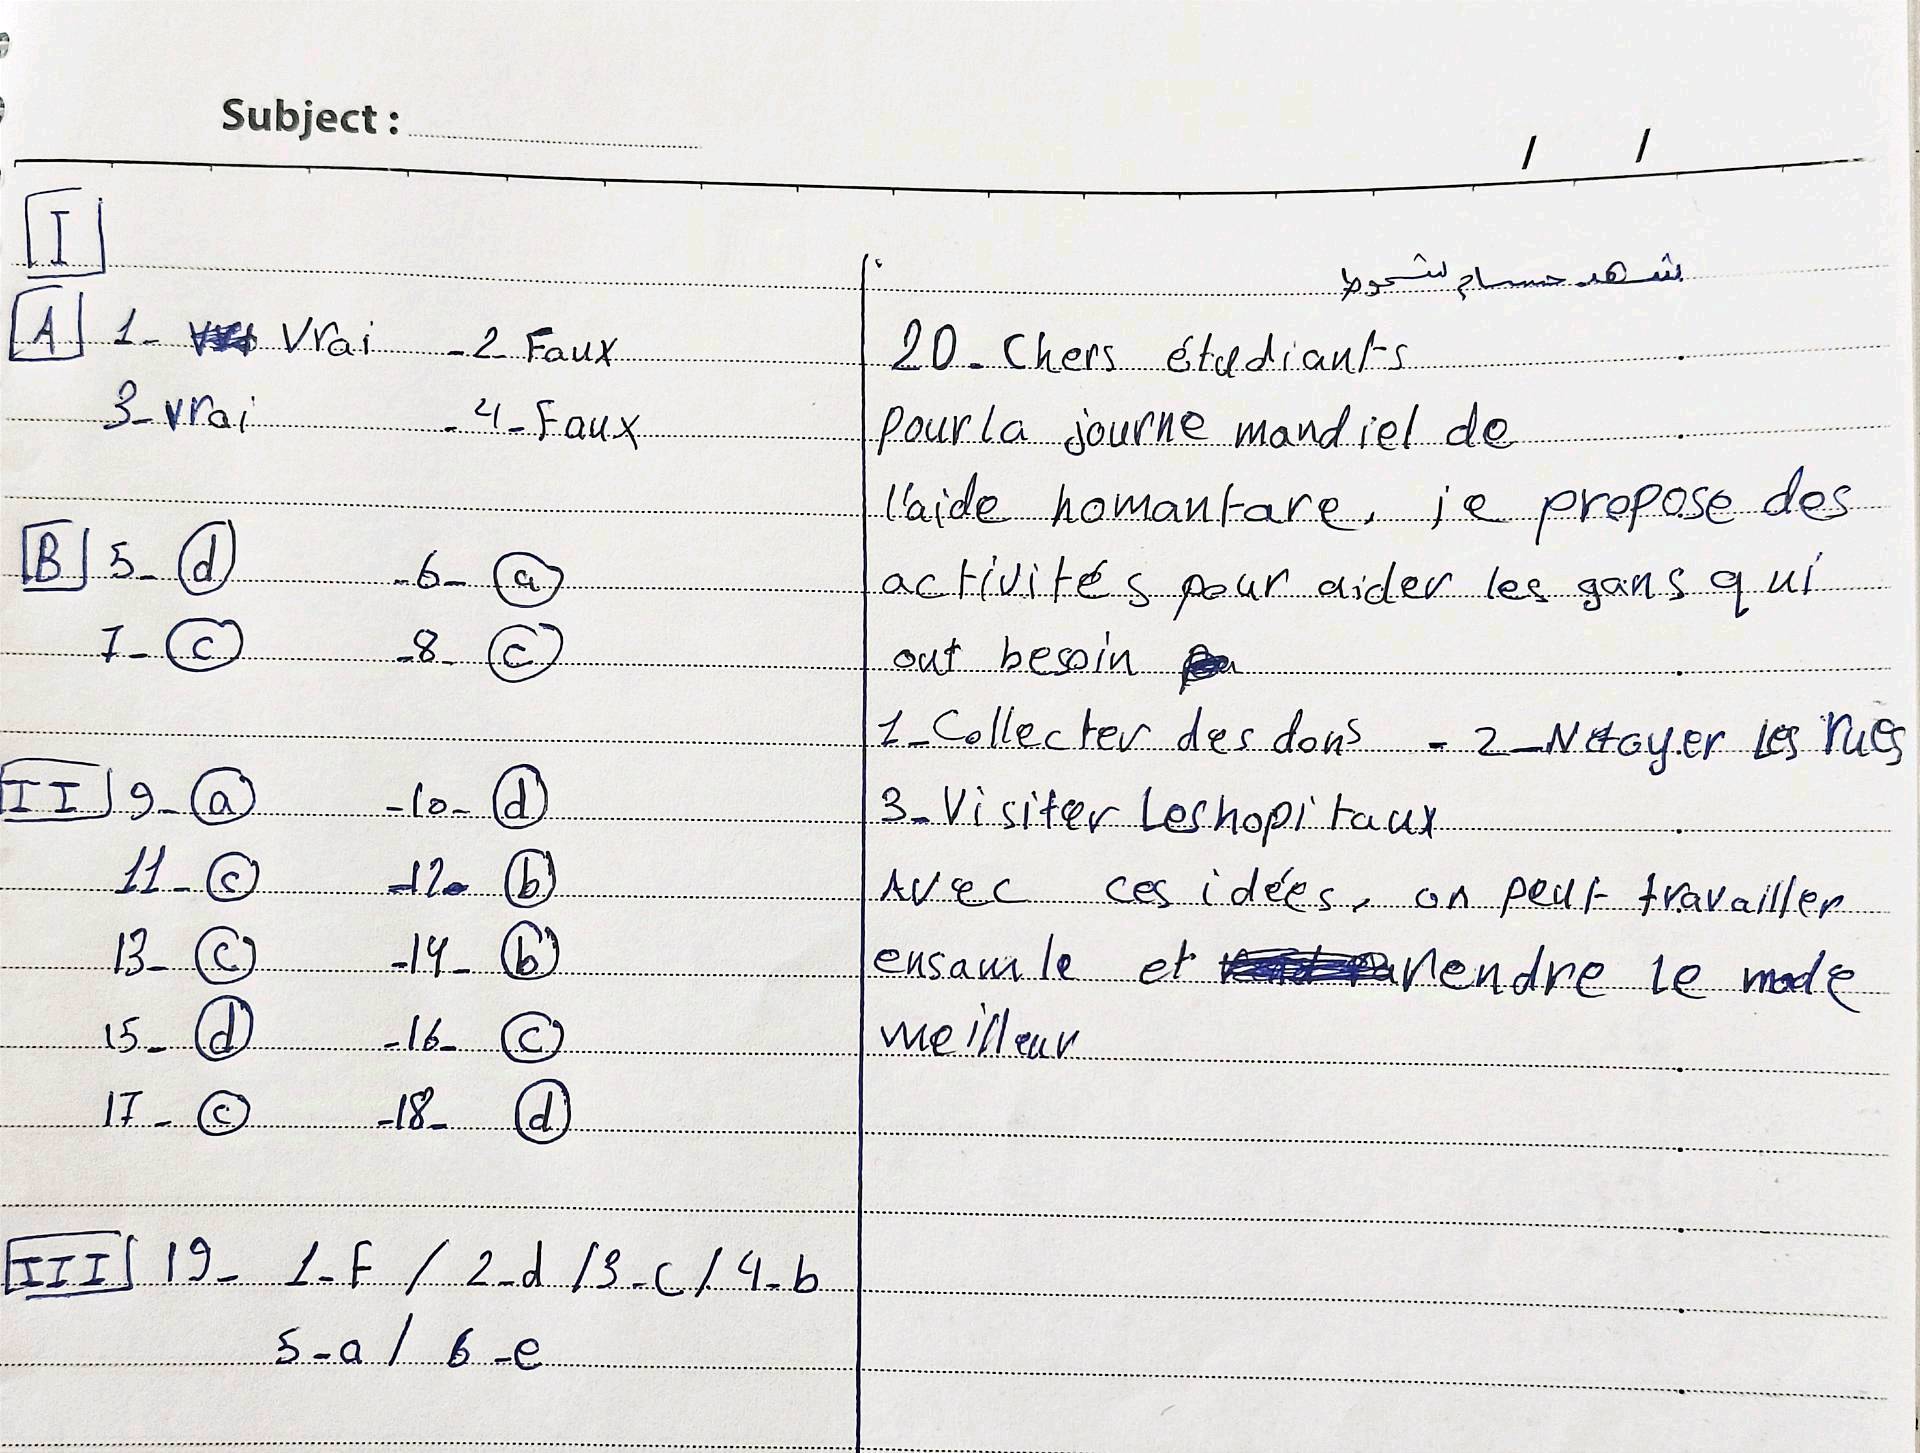 Subject :
/ /
I
A 1- Vrai -2- Faux
3- vrai -4- Faux
B 5- d -6- a
7- c -8- c
II 9- a -10- d
11- c -12- b
13- c -14- b
15- d -16- c
17- c -18- d
III 19- 1-F / 2-d / 3-c / 4-b
5-a / 6-e
شهد حسام شحوط
20- Chers étudiants
pour la journe mandiel de
l'aide homantare, je propose des
activités pour aider les gans qui
out besoin
1-Collecter des dons - 2-Netoyer les rues
3-Visiter Les hopitaux
Avec ces idées, on peut travailler
ensamle et rendre le mode
meilleur